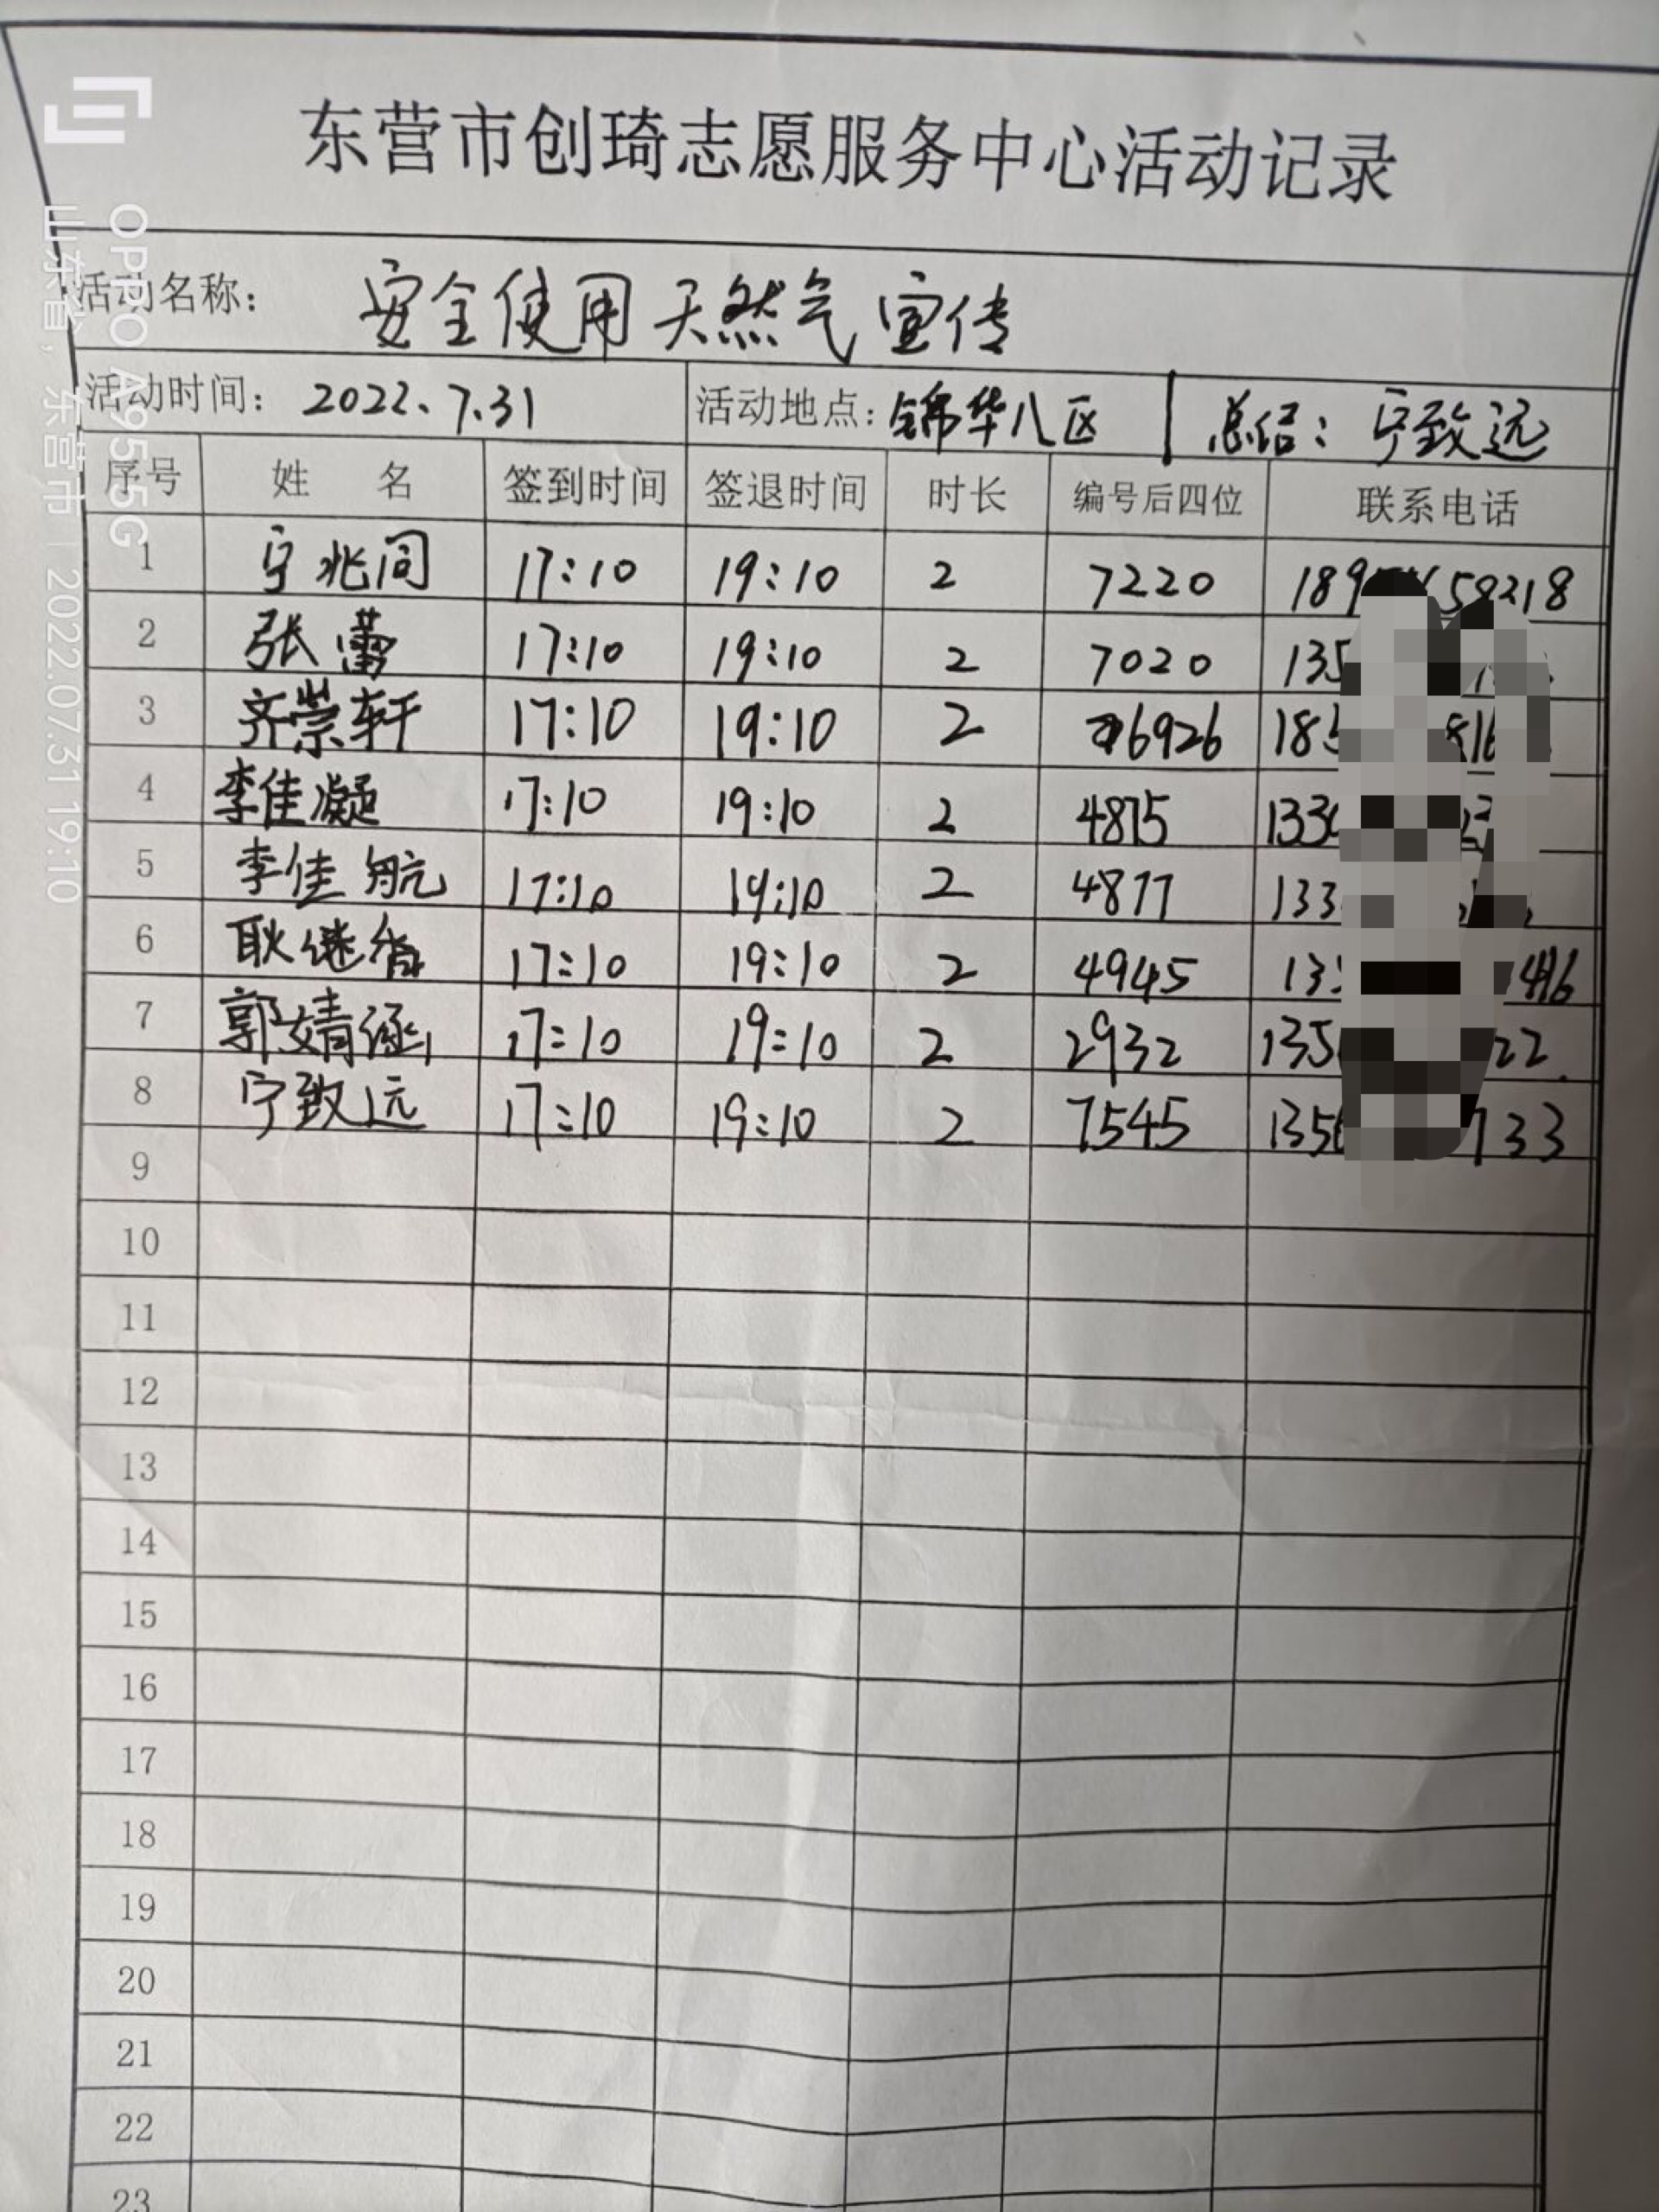 东营市创琦志愿服务中心活动记录
活动名称： 安全使用天然气宣传
活动时间： 2022、7.31 活动地点：锦华八区 总结：宁致远
序号 姓 名 签到时间 签退时间 时长 编号后四位 联系电话
1 宁兆同 17:10 19:10 2 7220 189 58218
2 张蕾 17:10 19:10 2 7020 135
3 齐崇轩 17:10 19:10 2 6926 185 816
4 李佳凝 17:10 19:10 2 4875 133
5 李佳航 17:10 19:10 2 4877 133
6 耿继 17:10 19:10 2 4945 13 416
7 郭婧涵 17:10 19:10 2 2932 135 22
8 宁致远 17:10 19:10 2 7545 135 733
9
10
11
12
13
14
15
16
17
18
19
20
21
22
23
OPPO A95 5G
山东省，东营市 | 2022.07.31 19:10